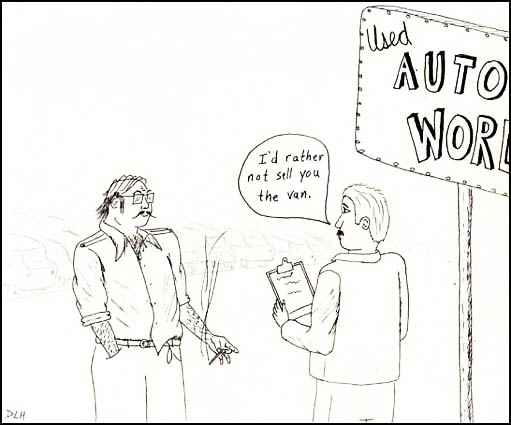 Used
AUTO
WORL
I'd rather
not sell you
the van.
DLH